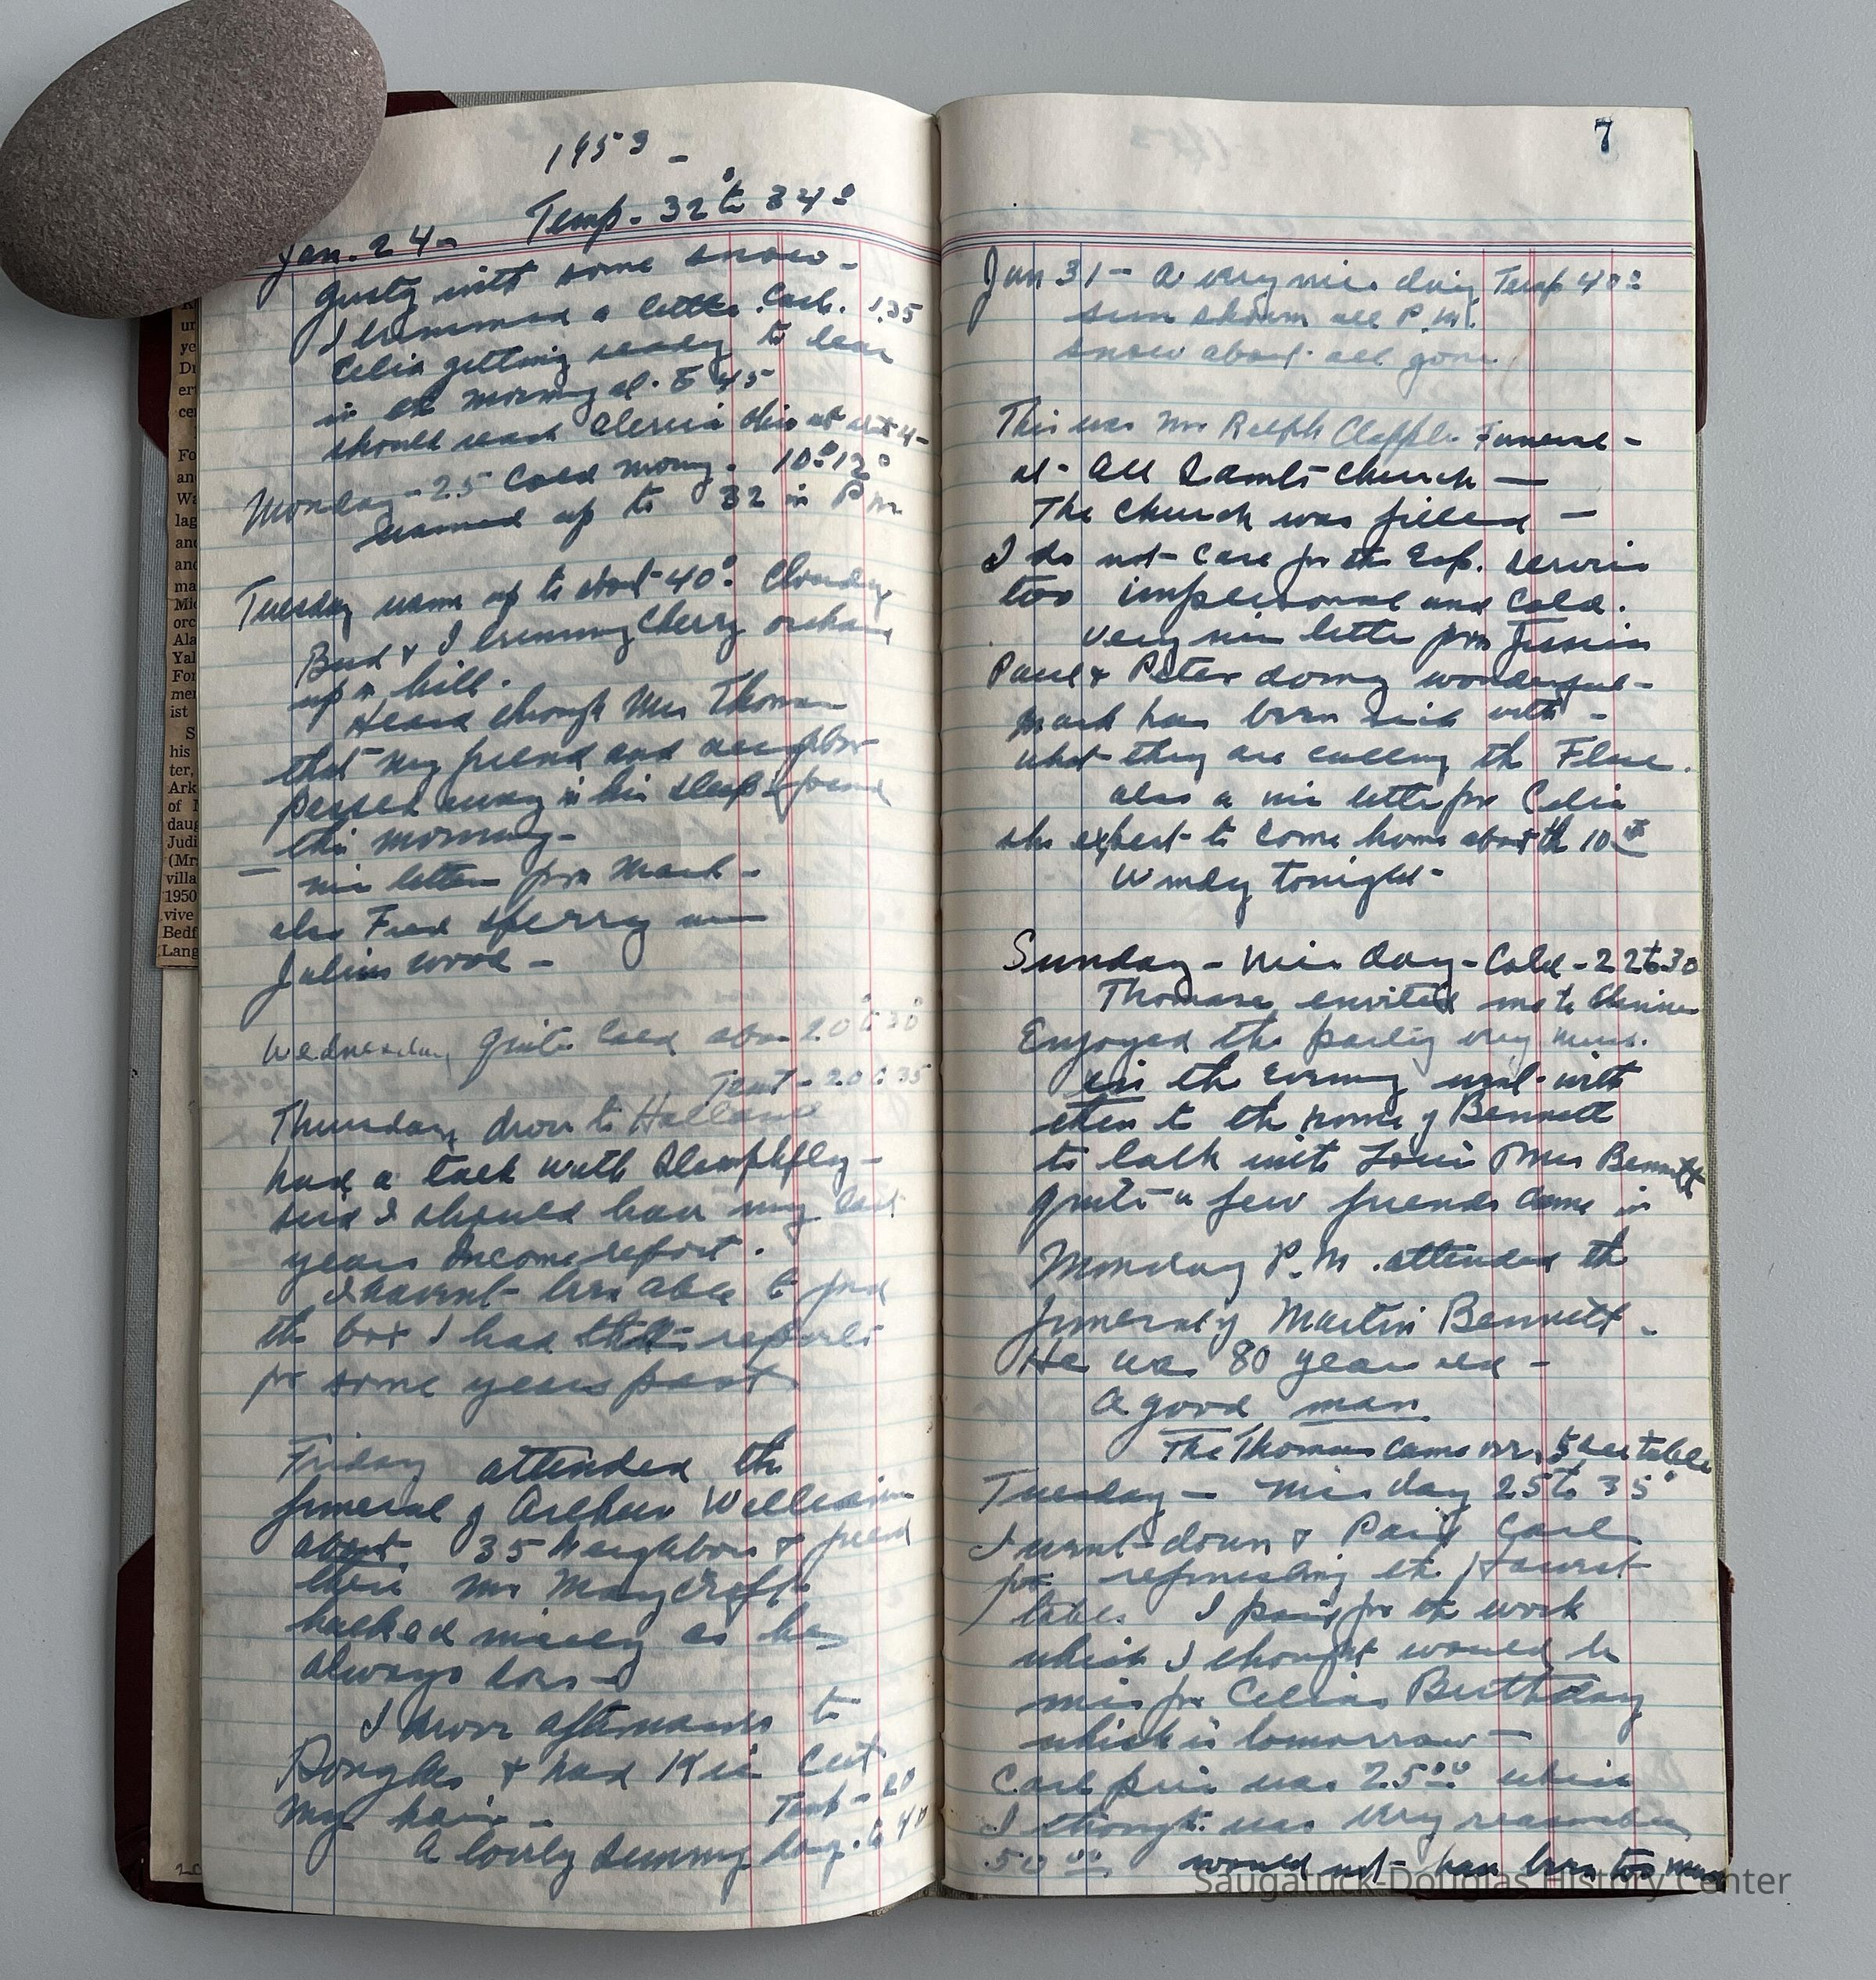 1953 -
Temp - 32° to 34°
Jan. 24 -
gusty with some snow -
I trimmed a little. Cash. 1.35
Celia getting ready to leav
in the morning at 5 45
should reach this at abt 4 -
Monday - 25 Cold morng. 10° 12°
warmed up to 32 in P m
Tuesday warm up to about 40° Cloudy
Bud & I trimming Cherry orchard
up on hill.
Heard through Mrs Thomas
that my friend and neighbor
passed away in his sleep found
this morning -
nice letter from Mark -
also Fred Sperry and
Julius Wood -
Wednesday quite cold abou 20 to 30°
Temt - 20 to 35
Thursday drove to Holland
had a talk with
said I should have my last
years Income report.
I havent been able to find
the box I had reports
for some years past
Friday attended the
funeral of Arthur William
about 35 Neighbors & friend
there Mr Maycroft
talked nicely as he
always does -
I drove afterwards to
Douglas & had cut
my hair - Temp - 20
A lovely sunny day. to 40
7
Jan 31 - A very nice day Temp 40°
sun shown all P.M.
snow about all gone
This was Mr Ralph Clapp Funeral -
at - All Saints Church -
The Church was filled -
I do not - care for the Esp. service
too impersonal and Cold.
very nice letter from
Paul & Peter doing wonderful -
Mark has been sick with -
what they are calling the Flue.
also a nice letter from Celia
she expect to come home about the 10th
Windy tonight -
Sunday - Nice day - Cold - 22 to 30
Thomases envited me to dinner
Enjoyed the party very much.
in the Evening went with
them to the home of Bennett
to talk with Louis & Mrs Bennett
quite a few friends came in
Monday P.M. attended the
funeral of Martin Bennett -
He was 80 years old -
A good man.
The Thomas came over, to see table
Tuesday - nice day 25 to 35°
I went down & Paid Carl
for refinishing the
table. I paid for the work
which I thought would be
nice for Celias Birthday
which is tomorrow -
Carl price was 25.00 which
I thought was very reasonable
50.00 would not - have been too much
Saugatuck-Douglas History Center
his
ter,
Ark
daug
Judi
(Mr
villa
1950
vive
Bedf
Lang